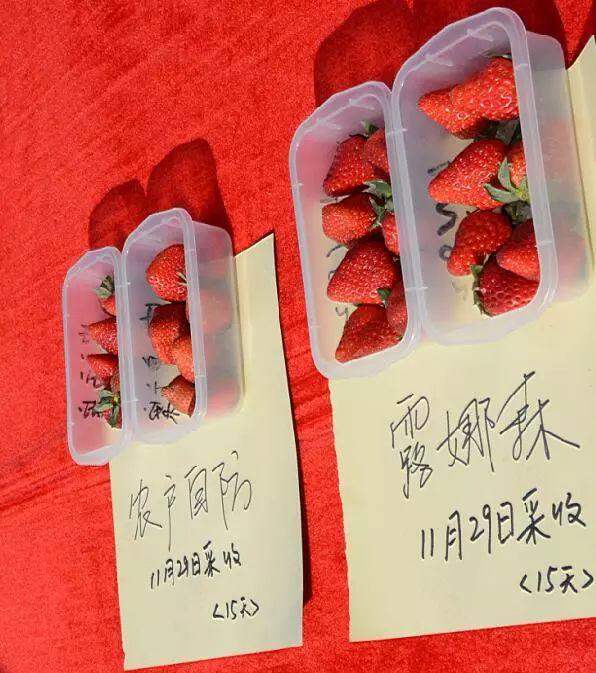 农户自防
11月29日采收
<15天>
露娜森
11月29日采收
<15天>